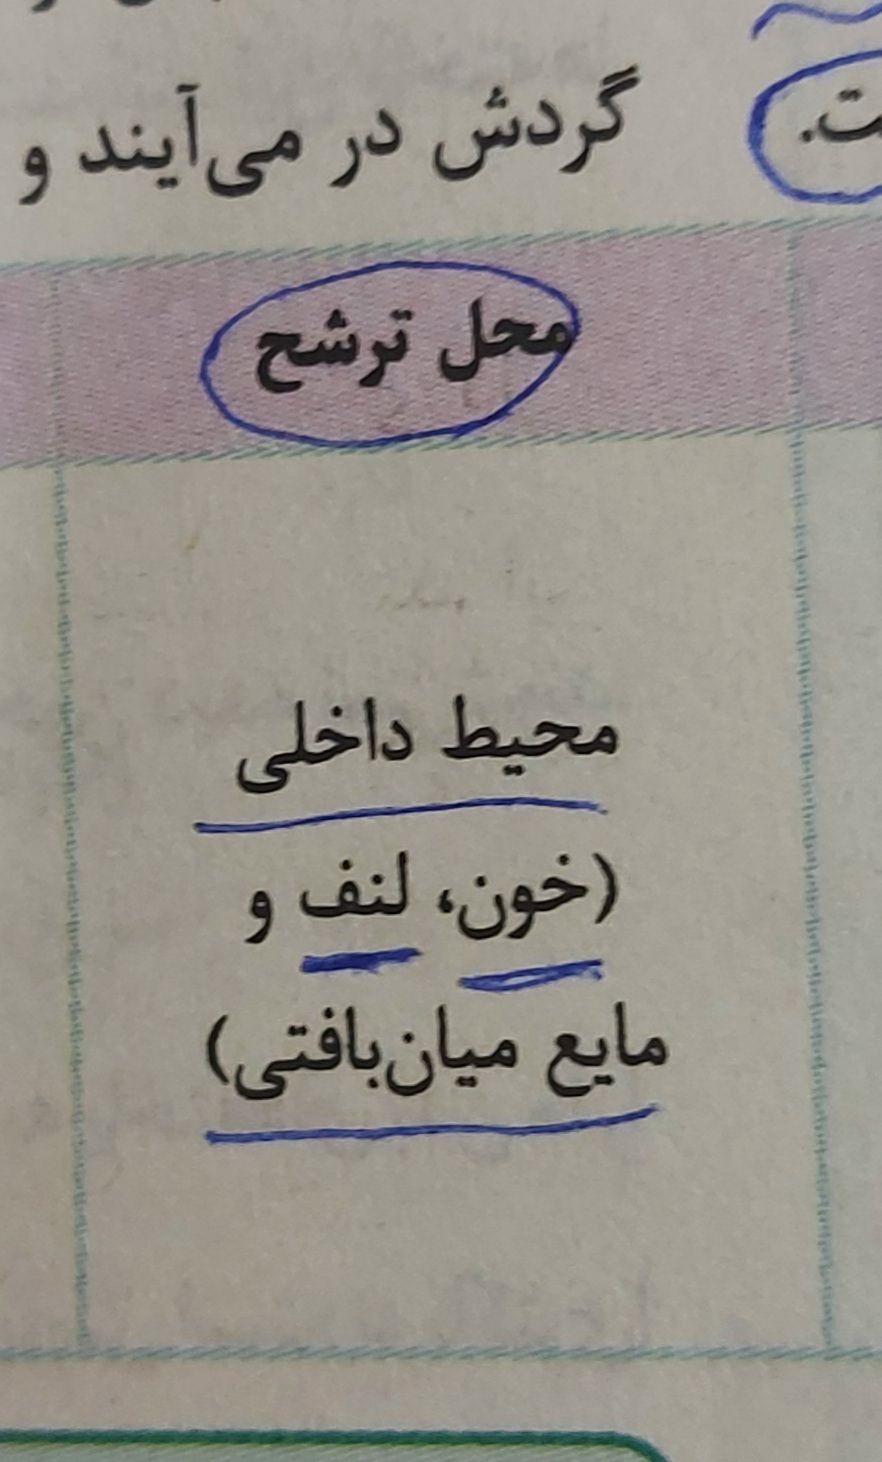 ت.
گردش در می‌آیند و
محل ترشح
محیط داخلی
(خون، لنف و
مایع میان‌بافتی)